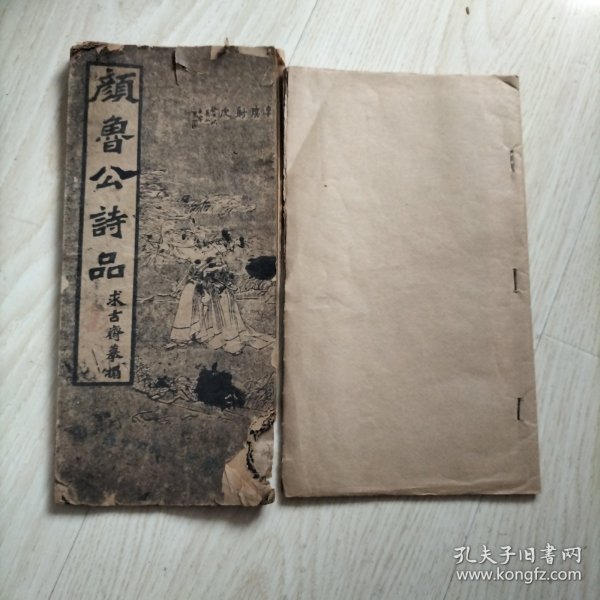 顏魯公詩品
求古齋摹搨
孔夫子旧書网
www.kongfz.com